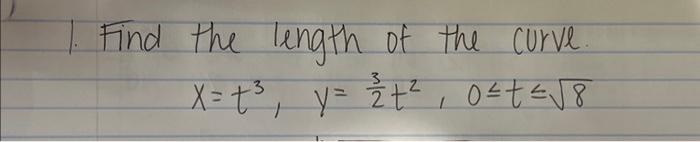 1. Find the length of the curve.
x=t³, y= 3/2 t², 0≤t≤√8